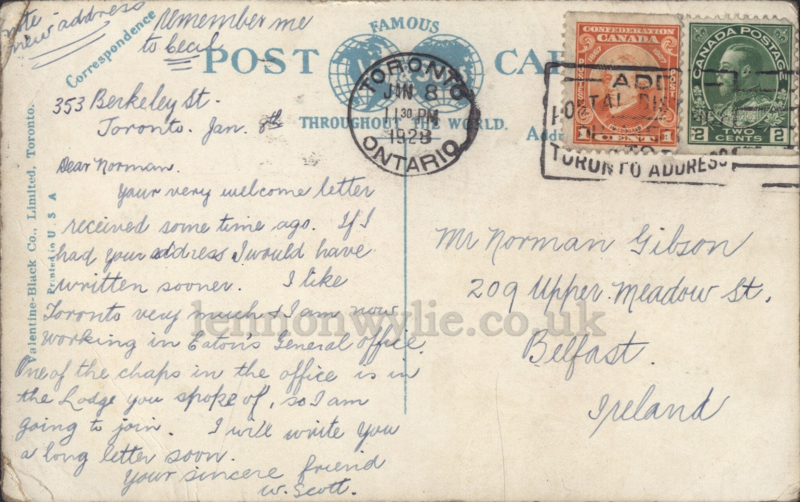 note
new address
remember me
to Cecil
Correspondence
FAMOUS
POST CA
THROUGHOUT THE WORLD.
Add
TORONTO
JAN 8
1 30 PM
1928
ONTARIO
CONFEDERATION
CANADA
1 CENT 1
CANADA POSTAGE
2 TWO CENTS 2
ADD
POSTAL DIS
TO
TORONTO ADDRESS
353 Berkeley St.
Toronto. Jan. 8th
Dear Norman.
Your very welcome letter
received some time ago. If I
had your address I would have
written sooner. I like
Toronto very much & I am now
working in Eaton's General office.
One of the chaps in the office is in
the Lodge you spoke of, so I am
going to join. I will write you
a long letter soon.
Your sincere friend
W. Scott.
Mr Norman Gibson
209 Upper Meadow St.
Belfast.
Ireland
Valentine-Black Co., Limited, Toronto.
Printed in U S A
lennonwylie.co.uk